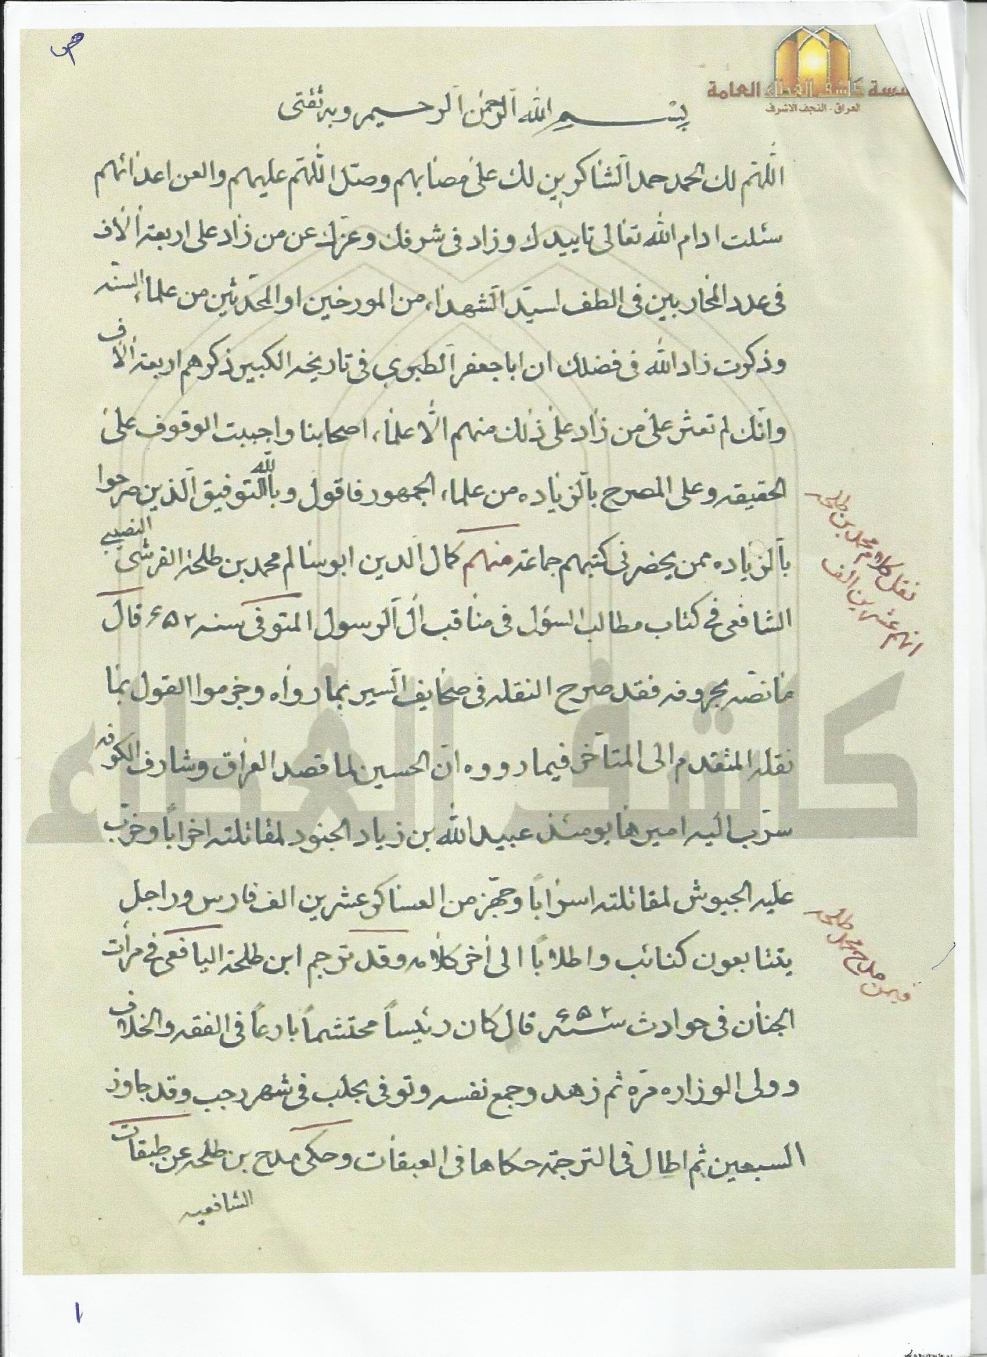 ص
مؤسسة كاشف الغطاء العامة
العراق - النجف الاشرف
بسم الله الرحمن الرحيم وبه ثقتى
اللهم لك الحمد حمد الشاكرين لك على مصابهم وصل اللهم عليهم والعن اعدائهم
سئلت ادام الله تعالى تاييدك وزاد فى شرفك وعزك عن من زاد على اربعة آلاف
فى عدد المحاربين فى الطف لسيد الشهداء من المورخين او المحدثين من علماء السنة
وذكرت زاد الله فى فضلك ان ابا جعفر الطبرى فى تاريخه الكبير ذكرهم اربعة آلاف
وانك لم تعثر على من زاد على ذلك منهم الا علماء اصحابنا واحببت الوقوف على
الحقيقه وعلى المصرح بالزياده من علماء الجمهور فاقول وبالله التوفيق الذين صرحوا
بالزياده ممن يحضرنى كتبهم جماعة منهم كمال الدين ابو سالم محمد بن طلحة القرشى النصيبى
الشافعى فى كتاب مطالب السؤل فى مناقب آل الرسول المتوفى سنه ٦٥٢ قال
ما نصه بحروفه فقد صرح النقله فى صحايف السير بما رواه وجزموا القول بما
نقله المتقدم الى المتأخر فيما رووه ان الحسين لما قصد العراق وشارف الكوفه
سرب اليه اميرها يومئذ عبيد الله بن زياد الجنود لمقاتلته احزابا وحزب
عليه الجيوش لمقاتلته اسرابا وجهز من العساكر عشرين الف فارس وراجل
يتتابعون كتائب واطلابا الى آخر كلامه وقد ترجم ابن طلحة اليافعى فى مرآت
الجنان فى حوادث سنة ٦٥٢ قال كان رئيسا محتشما بارعا فى الفقه والخلاف
وولى الوزاره مره ثم زهد وجمع نفسه وتوفى بحلب فى شهر رجب وقد جاوز
السبعين ثم اطال فى الترجمة حكاها فى العبقات وحكى مدح بن طلحه عن طبقات
الشافعيه
نقل كلام محمد بن طلحه
انهم عشرين الف
فيمن مدح محمد طلحه
١
كاشف الغطاء